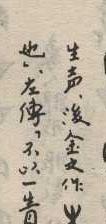 生声,後金文作
也」、左傳「不以一眚